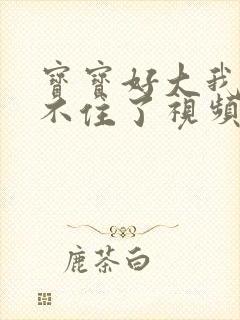 寶寶好大我
不住了視頻
鹿茶白